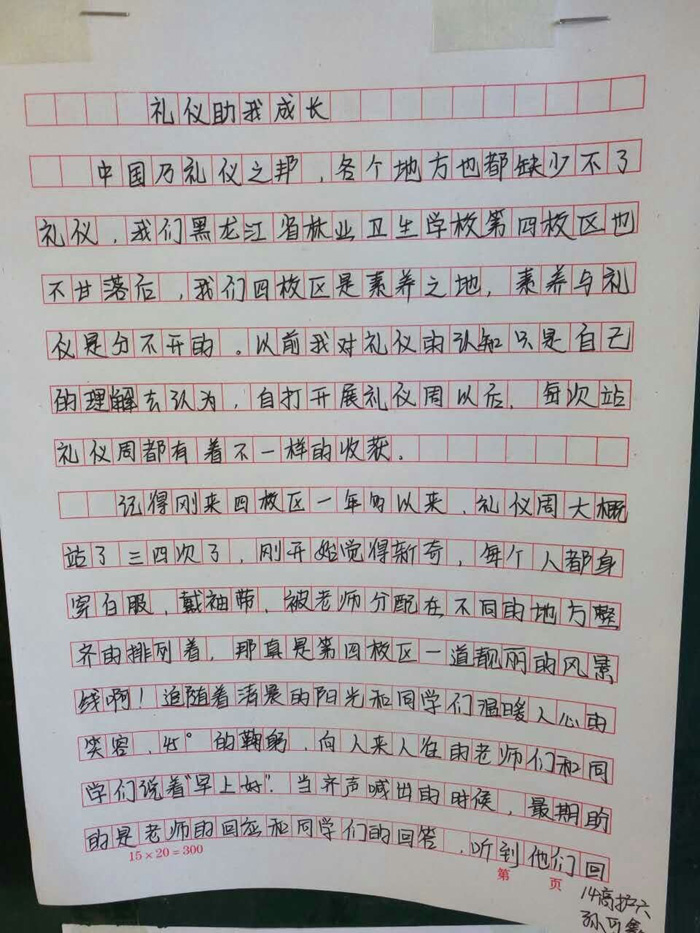 礼仪助我成长
中国乃礼仪之邦，各个地方也都缺少不了
礼仪，我们黑龙江省林业卫生学校第四校区也
不甘落后，我们四校区是素养之地，素养与礼
仪是分不开的。以前我对礼仪的认知只是自己
的理解去认为，自打开展礼仪周以后，每次站
礼仪周都有着不一样的收获。
记得刚来四校区一年多以来，礼仪周大概
站了三四次了，刚开始觉得新奇，每个人都身
穿白服，戴袖带，被老师分配在不同的地方整
齐的排列着，那真是第四校区一道靓丽的风景
线啊！追随着清晨的阳光和同学们温暖人心的
笑容，45°的鞠躬，向人来人往的老师们和同
学们说着"早上好"。当齐声喊出的时候，最期盼
的是老师的回应和同学们的回答，听到他们回
15×20=300
第 页
14高护六
孙